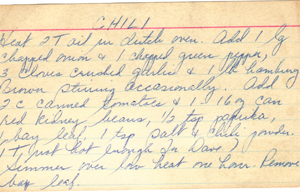 CHILI
Heat 2T oil in dutch oven. Add 1 lg
chopped onion & 1 chopped green pepper,
3 cloves crushed garlic & 1 lb hamburg
Brown stirring occasionally. Add
2 c canned tomatoes & 1 16 oz can
red kidney beans, 1/2 tsp paprika,
1 bay leaf, 1 tsp salt & chili powder.
1 T just hot enough for Dave)
Simmer over low heat one hour. Remove
bay leaf.